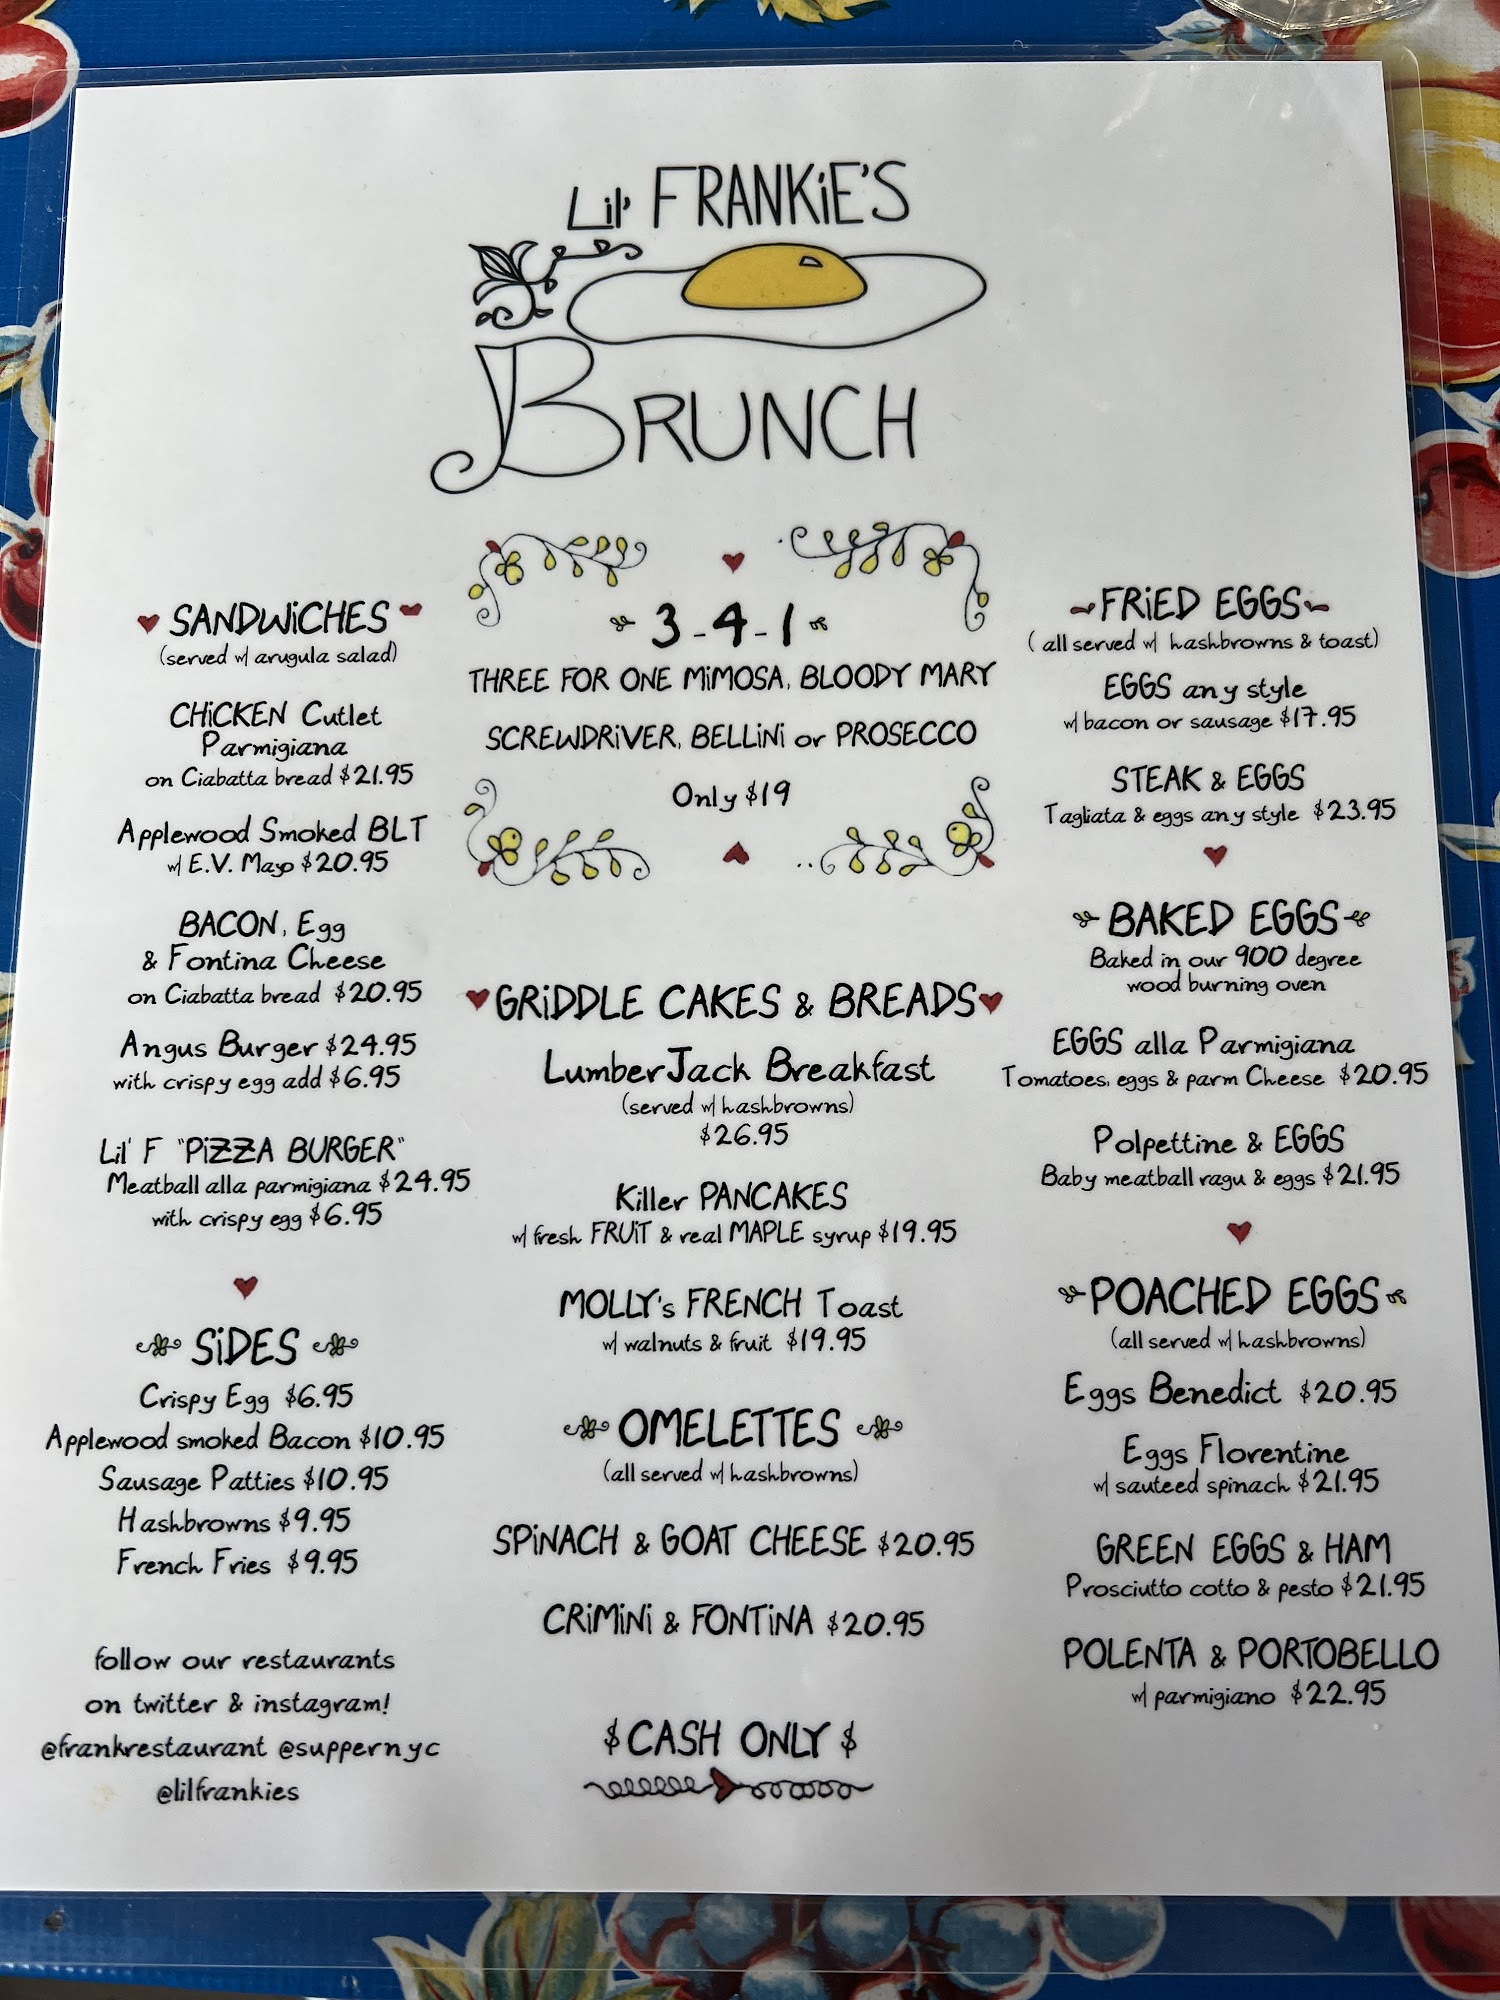 Lil' FRANKiE'S
BRUNCH
SANDWiCHES
(served w/ arugula salad)
CHiCKEN Cutlet
Parmigiana
on Ciabatta bread $21.95
Applewood Smoked BLT
w/ E.V. Mayo $20.95
BACON, Egg
& Fontina Cheese
on Ciabatta bread $20.95
Angus Burger $24.95
with crispy egg add $6.95
Lil' F "PiZZA BURGER"
Meatball alla parmigiana $24.95
with crispy egg $6.95
SiDES
Crispy Egg $6.95
Applewood smoked Bacon $10.95
Sausage Patties $10.95
Hashbrowns $9.95
French Fries $9.95
follow our restaurants
on twitter & instagram!
@frankrestaurant @suppernyc
@lilfrankies
3-4-1
THREE FOR ONE MiMOSA, BLOODY MARY
SCREWDRiVER, BELLiNi or PROSECCO
Only $19
GRiDDLE CAKES & BREADS
LumberJack Breakfast
(served w/ hashbrowns)
$26.95
Killer PANCAKES
w/ fresh FRUiT & real MAPLE syrup $19.95
MOLLY's FRENCH Toast
w/ walnuts & fruit $19.95
OMELETTES
(all served w/ hashbrowns)
SPiNACH & GOAT CHEESE $20.95
CRiMiNi & FONTiNA $20.95
$ CASH ONLY $
FRiED EGGS
(all served w/ hashbrowns & toast)
EGGS any style
w/ bacon or sausage $17.95
STEAK & EGGS
Tagliata & eggs any style $23.95
BAKED EGGS
Baked in our 900 degree
wood burning oven
EGGS alla Parmigiana
Tomatoes, eggs & parm Cheese $20.95
Polpettine & EGGS
Baby meatball ragu & eggs $21.95
POACHED EGGS
(all served w/ hashbrowns)
Eggs Benedict $20.95
Eggs Florentine
w/ sauteed spinach $21.95
GREEN EGGS & HAM
Prosciutto cotto & pesto $21.95
POLENTA & PORTOBELLO
w/ parmigiano $22.95